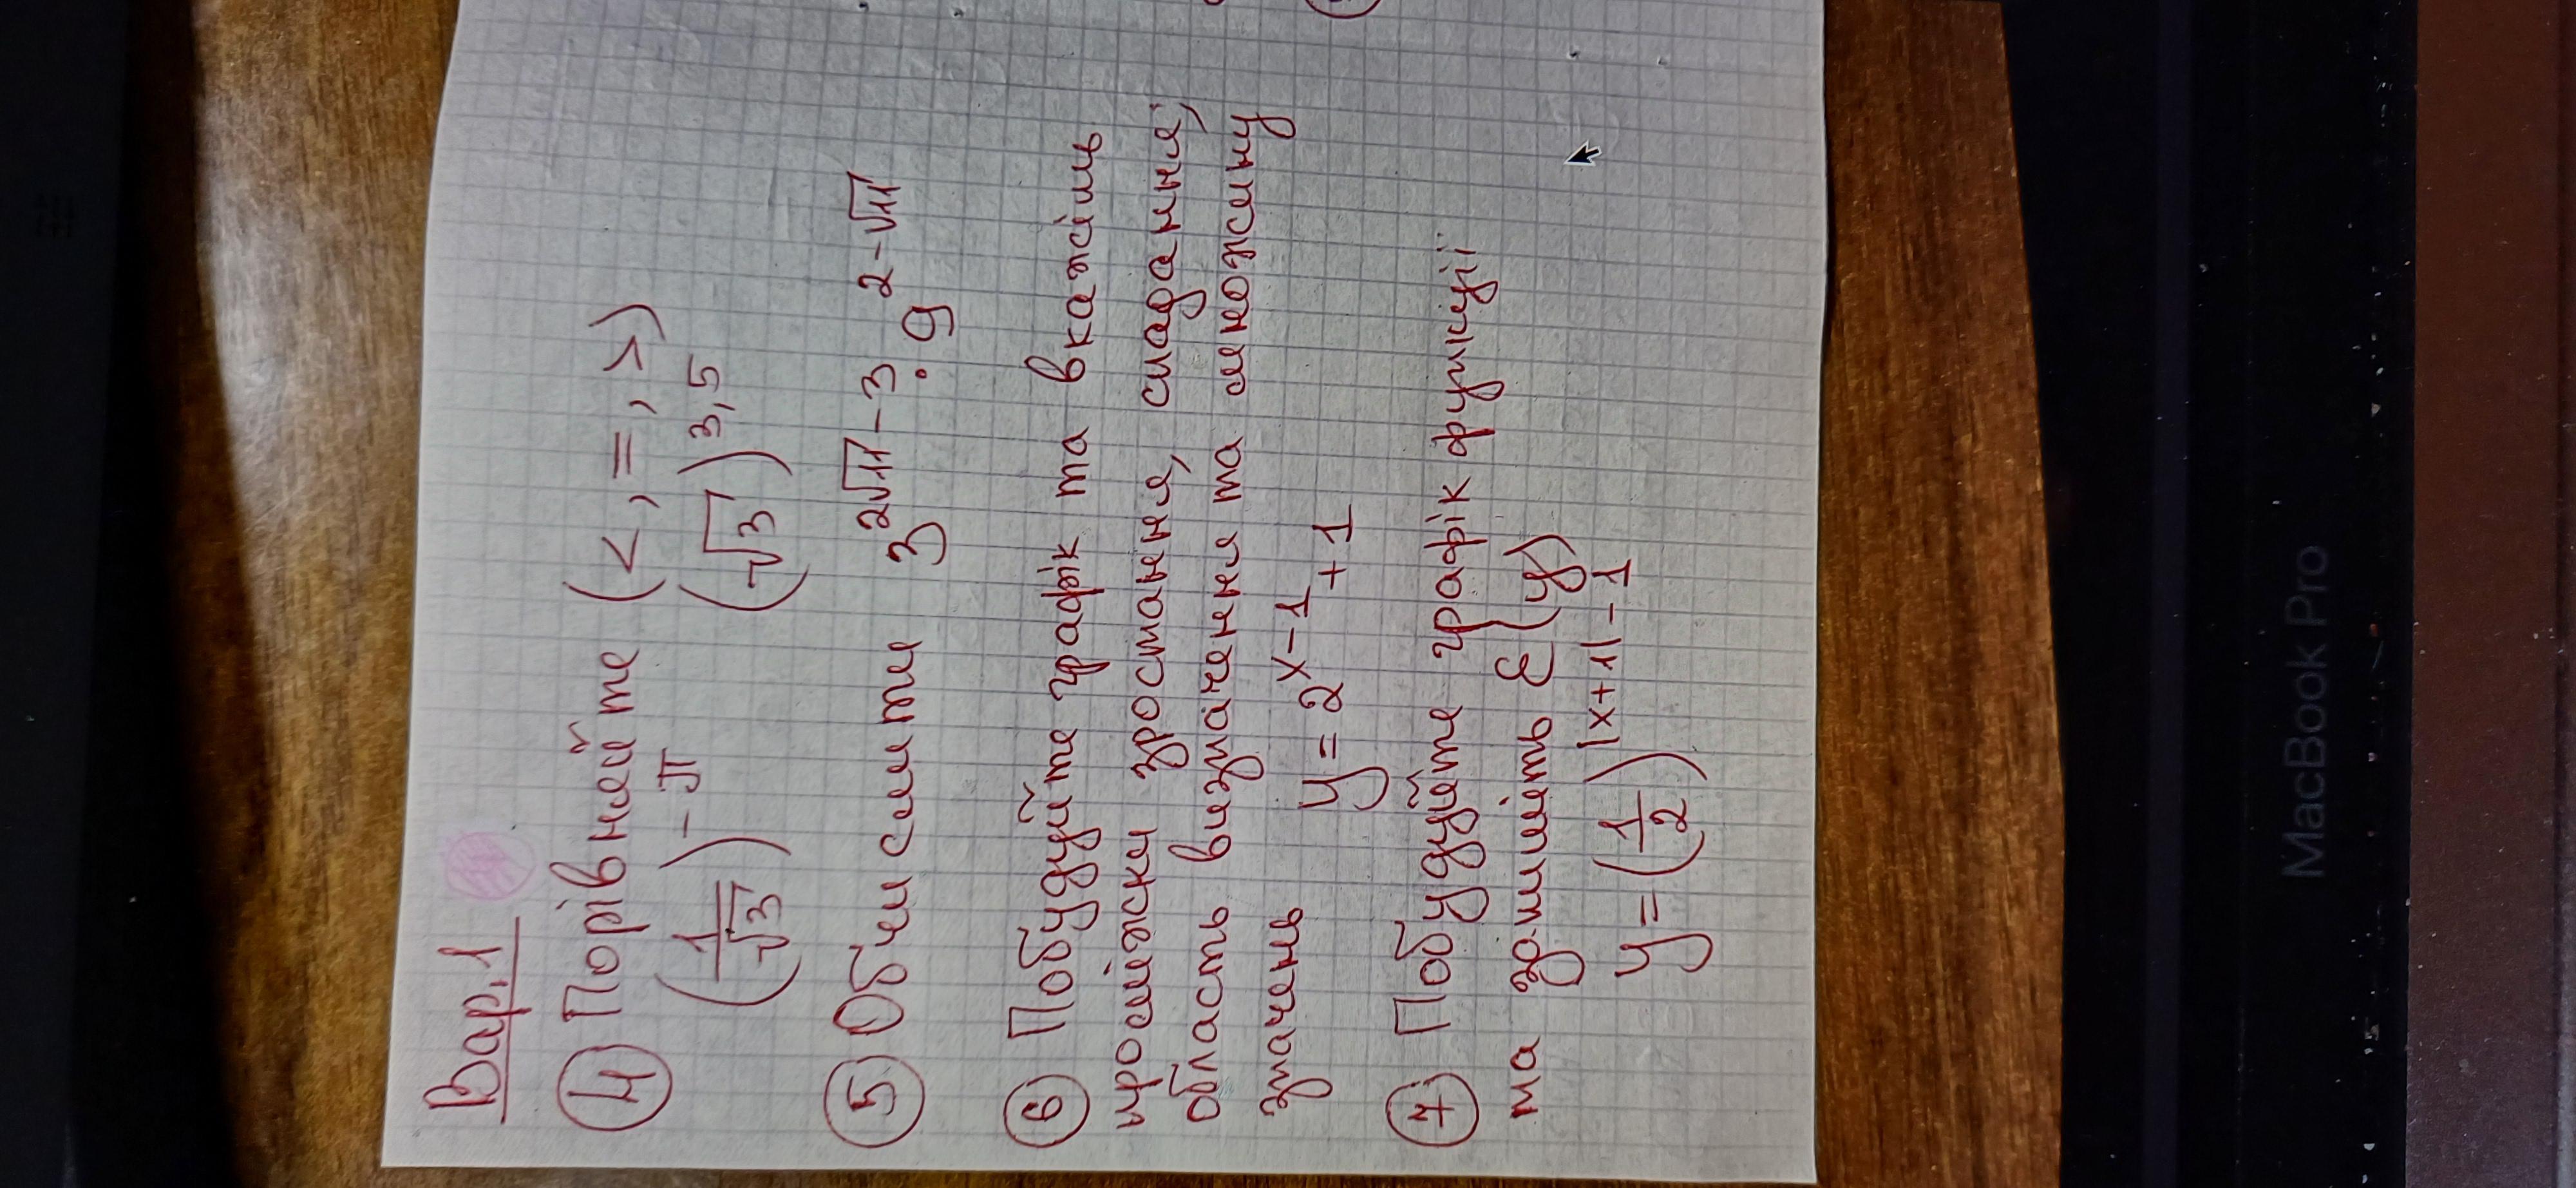 Вар. 1
4 Порівняйте (<, =, >)
(1/√3)^-π (√3)^3,5
5 Обчислити 3^2√11-3 · 9^2-√11
6 Побудуйте графік та вкажіть
проміжки зростання, спадання,
область визначення та множину
значень y = 2^x-1 + 1
7 Побудуйте графік функції
та запишіть E(y)
y = (1/2)^|x+1| - 1
MacBook Pro